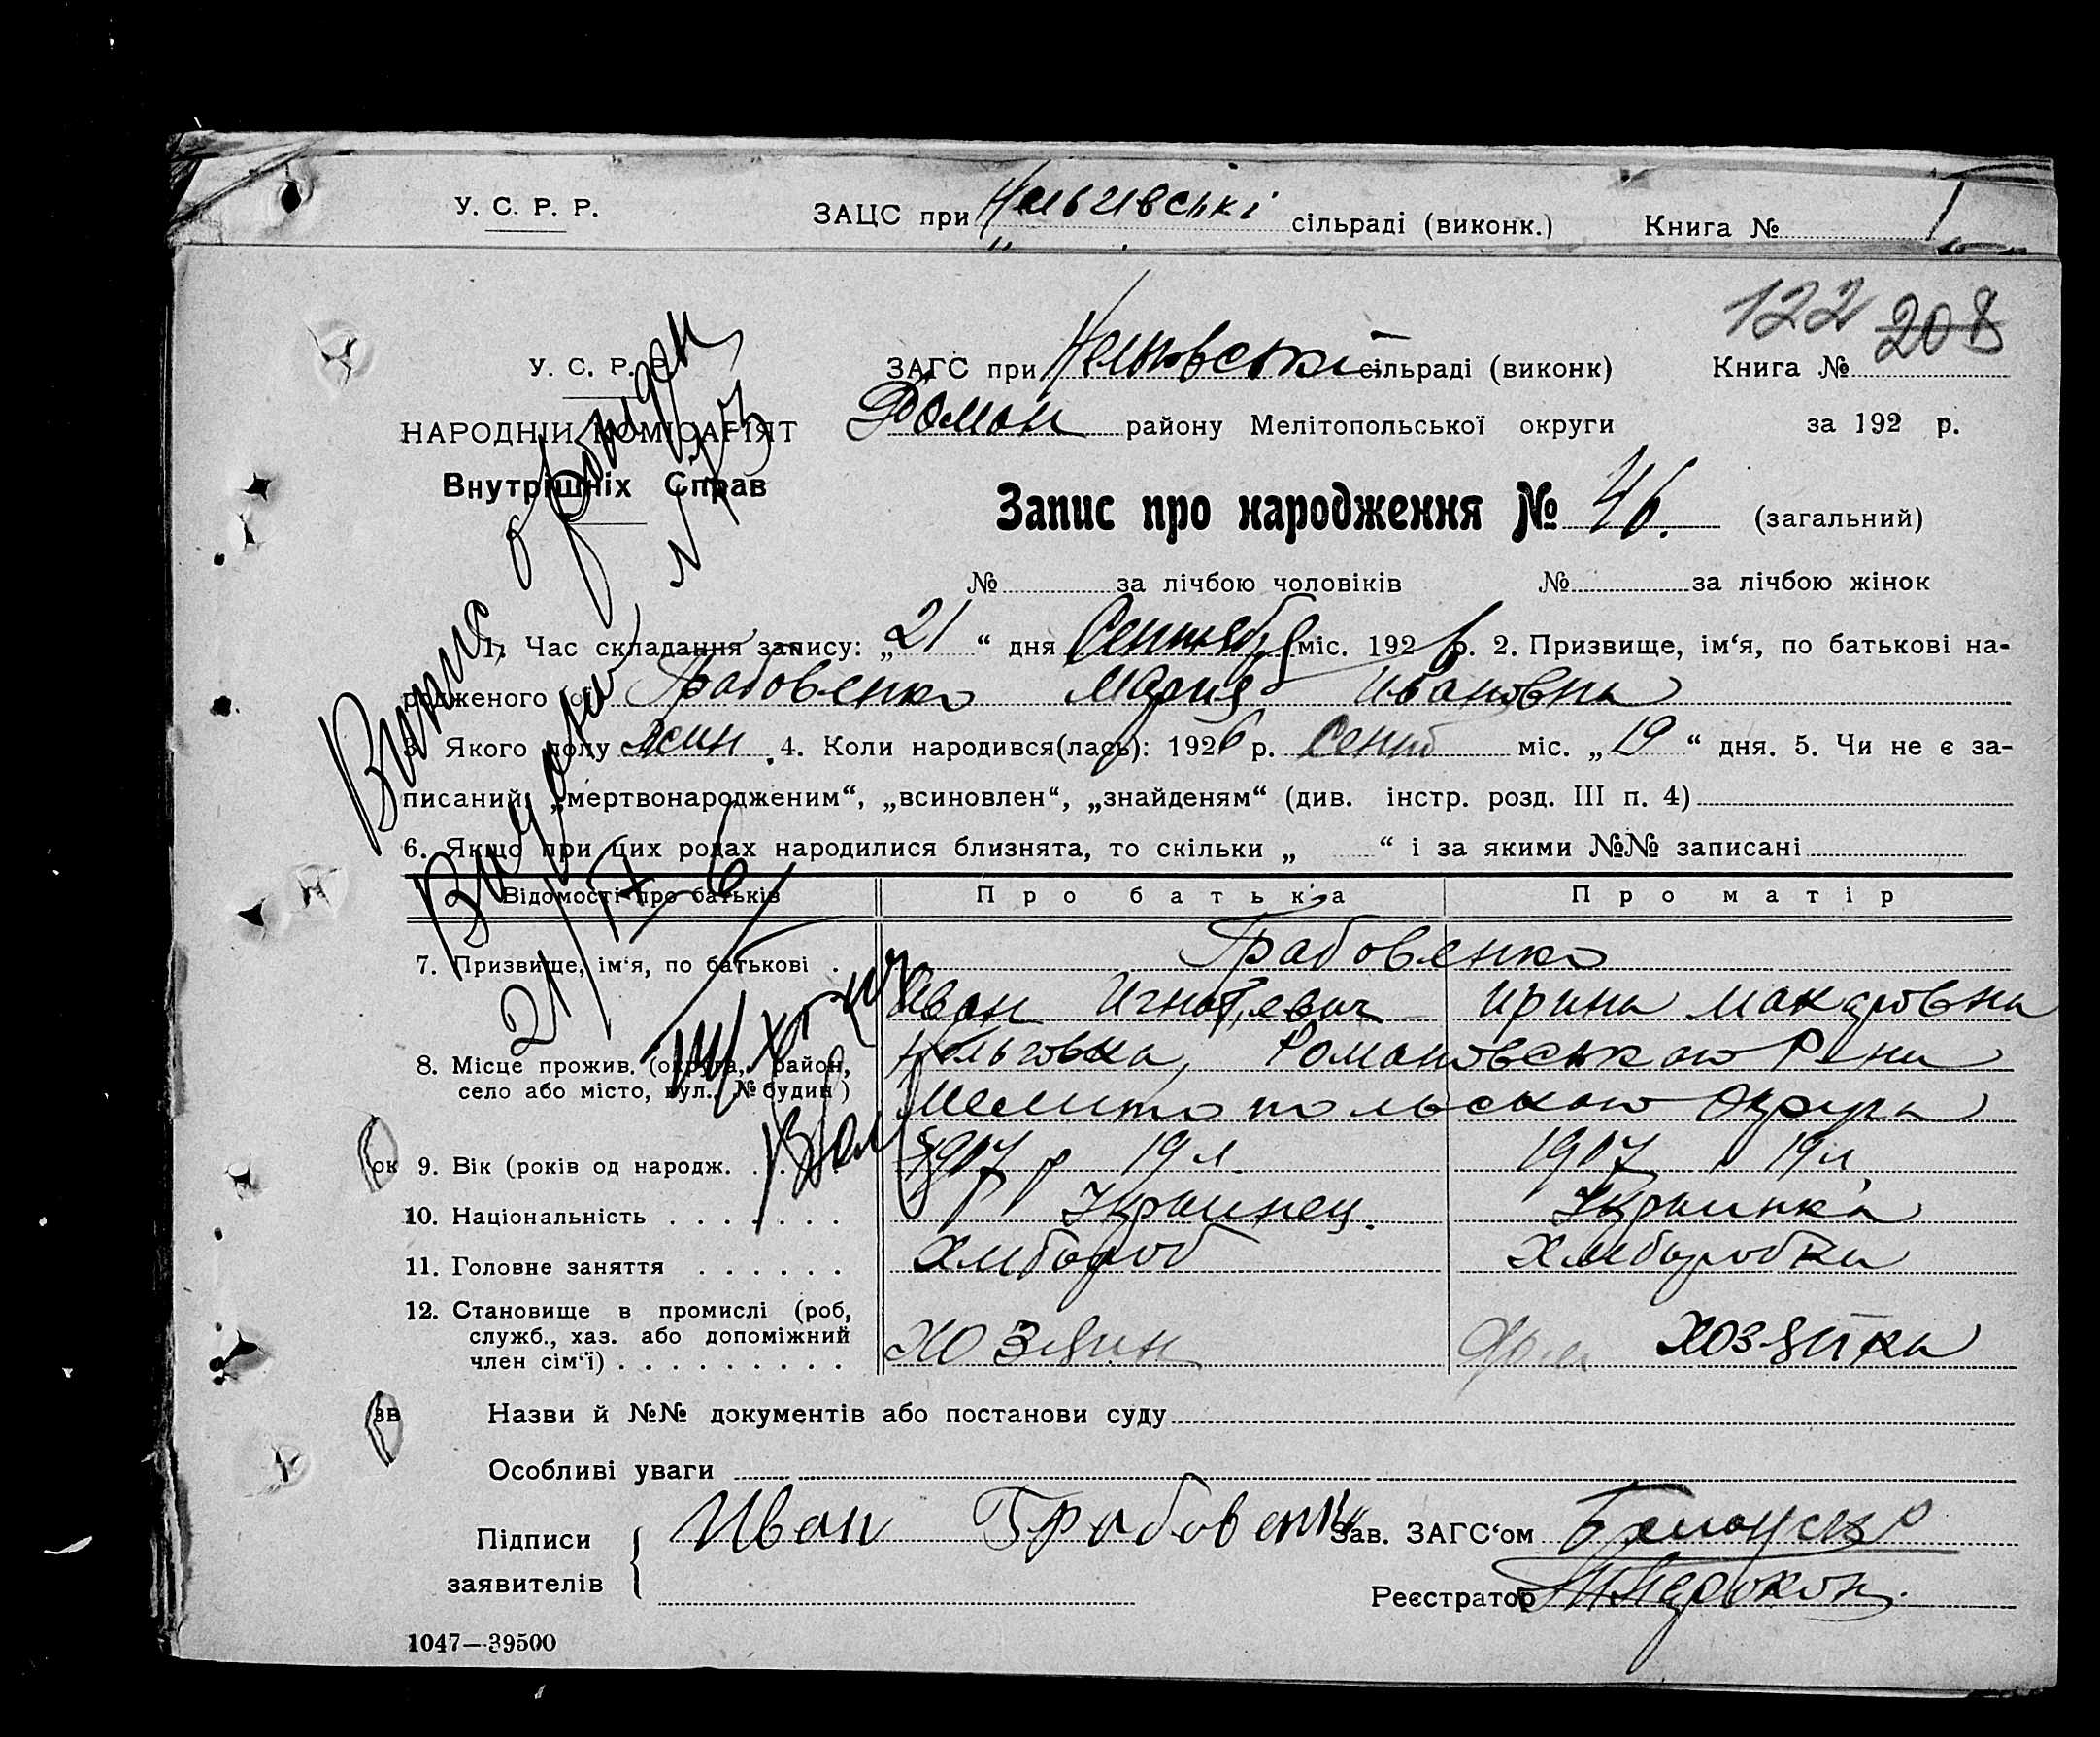 У. С. Р. Р. ЗАЦС при сільраді (виконк.) Книга № 1
122 208
У. С. Р. Р. ЗАГС при сільраді (виконк) Книга №
НАРОДНІЙ КОМІСАРІЯТ Роман району Мелітопольської округи за 192 р.
Внутрішніх Справ
Запис про народження № 46. (загальний)
№ за лічбою чоловіків № за лічбою жінок
1. Час складання запису: „21“ дня Сентября міс. 1926 р. 2. Призвище, ім‘я, по батькові на-
родженого ої Грабовенко Мария Ивановна
3. Якого полу жин. 4. Коли народився(лась): 1926 р. Сент міс. „19“ дня. 5. Чи не є за-
писаний: „мертвонародженим“, „всиновлен“, „знайденям“ (див. інстр. розд. III п. 4)
6. Якщо при цих родах народилися близнята, то скільки „ “ і за якими №№ записані
Відомості про батьків Про батька Про матір
7. Призвище, ім‘я, по батькові Грабовенко
Иван Игнатьевич Ирина
8. Місце прожив. (округа, район, Романовського
село або місто, вул., № будин) Мелитопольского Округа
ок 9. Вік (років од народж. 1907 р 19 л. 1907 19 л
10. Національність Украинец. Украинка
11. Головне заняття Хлибороб Хлиборобка
12. Становище в промислі (роб,
служб., хаз. або допоміжний
член сім‘ї) хозяин дом хозяйка
зв Назви й №№ документів або постанови суду
Особливі уваги
Підписи
заявителів Иван Грабовенко Зав. ЗАГС‘ом
Реєстратор
1047—39500
Випис о рожден
Видано
21/IX-6